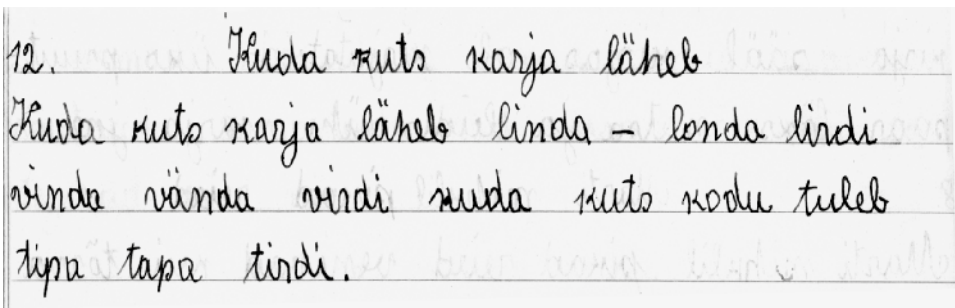 12. Kuda kuts karja läheb
Kuda kuts karja läheb linda - londa lirdi
vinda vända virdi kuda kuts kodu tuleb
tipa tapa tirdi.